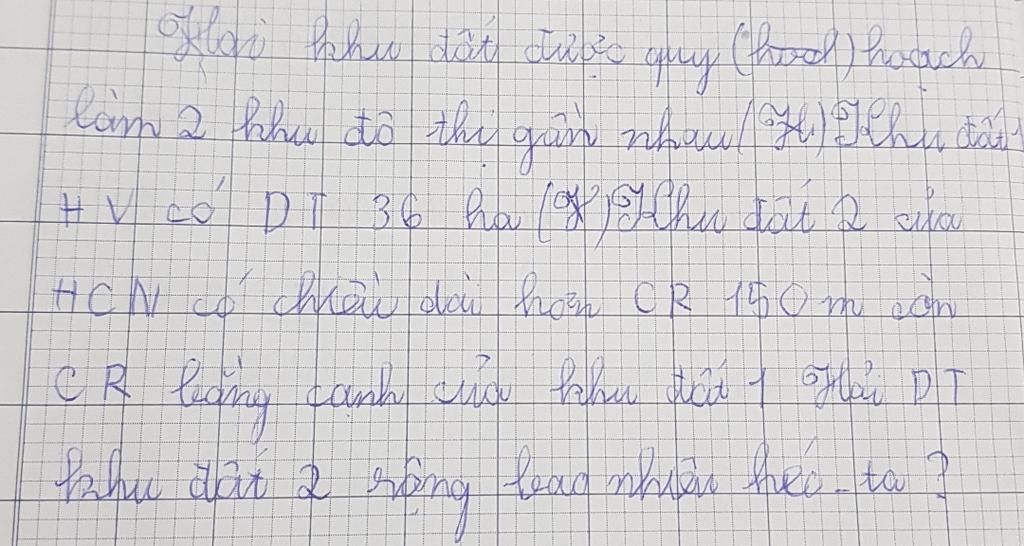 Hai khu đất được quy (hod) hoạch
làm 2 khu đô thị gần nhau (H) Khu đất 1
HV có DT 36 ha (K) Khu đất 2 của
HCN có chiều dài hơn CR 150 m còn
CR bằng cạnh của khu đất 1 Hỏi DT
khu đất 2 rộng bao nhiêu héc-ta ?